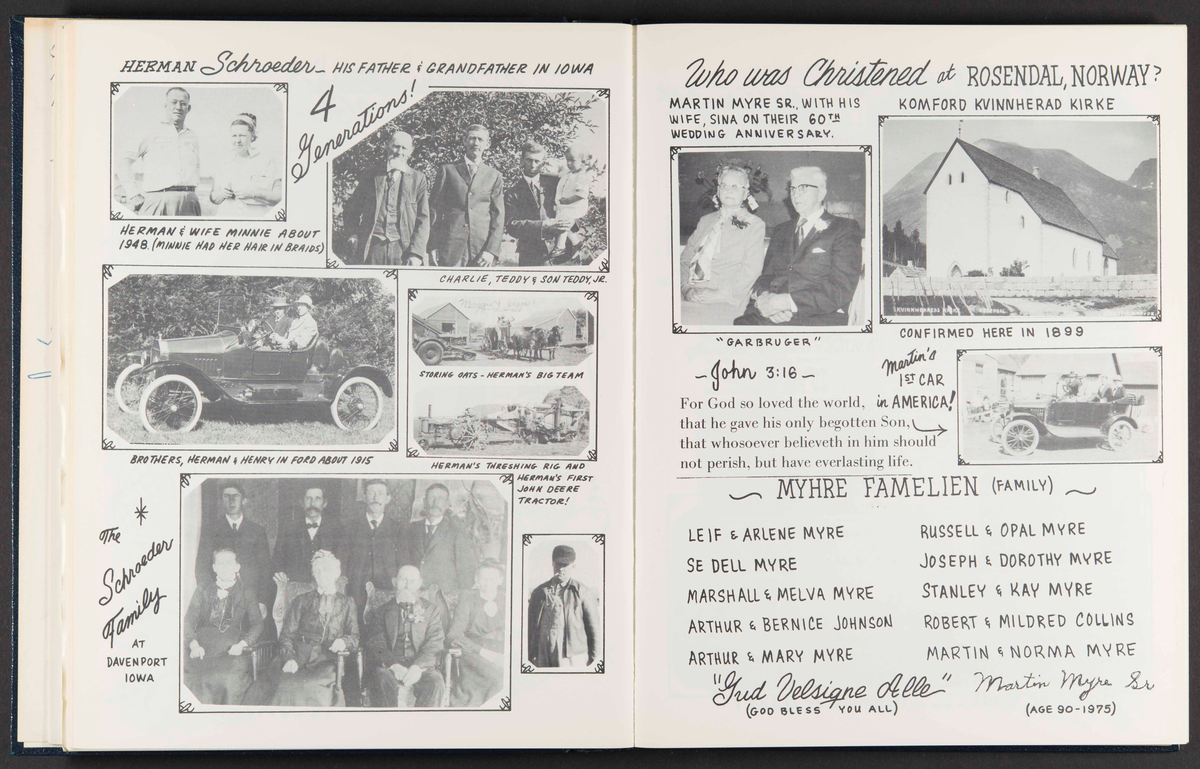 HERMAN Schroeder - HIS FATHER & GRANDFATHER IN IOWA
4
Generations!
HERMAN & WIFE MINNIE ABOUT
1948. (MINNIE HAD HER HAIR IN BRAIDS)
CHARLIE, TEDDY & SON TEDDY, JR.
BROTHERS, HERMAN & HENRY IN FORD ABOUT 1915
STORING OATS - HERMAN'S BIG TEAM
HERMAN'S THRESHING RIG AND
HERMAN'S FIRST
JOHN DEERE
TRACTOR!
The
Schroeder
Family
AT
DAVENPORT
IOWA
Who was Christened at ROSENDAL, NORWAY?
MARTIN MYRE SR., WITH HIS
WIFE, SINA ON THEIR 60TH
WEDDING ANNIVERSARY.
KOMFORD KVINNHERAD KIRKE
"GARBRUGER"
CONFIRMED HERE IN 1899
- John 3:16 -
For God so loved the world,
that he gave his only begotten Son,
that whosoever believeth in him should
not perish, but have everlasting life.
Martin's
1ST CAR
in AMERICA!
MYHRE FAMELIEN (FAMILY)
LEIF & ARLENE MYRE
SE DELL MYRE
MARSHALL & MELVA MYRE
ARTHUR & BERNICE JOHNSON
ARTHUR & MARY MYRE
RUSSELL & OPAL MYRE
JOSEPH & DOROTHY MYRE
STANLEY & KAY MYRE
ROBERT & MILDRED COLLINS
MARTIN & NORMA MYRE
"Gud Velsigne Alle"
(GOD BLESS YOU ALL)
Martin Myre Sr
(AGE 90-1975)